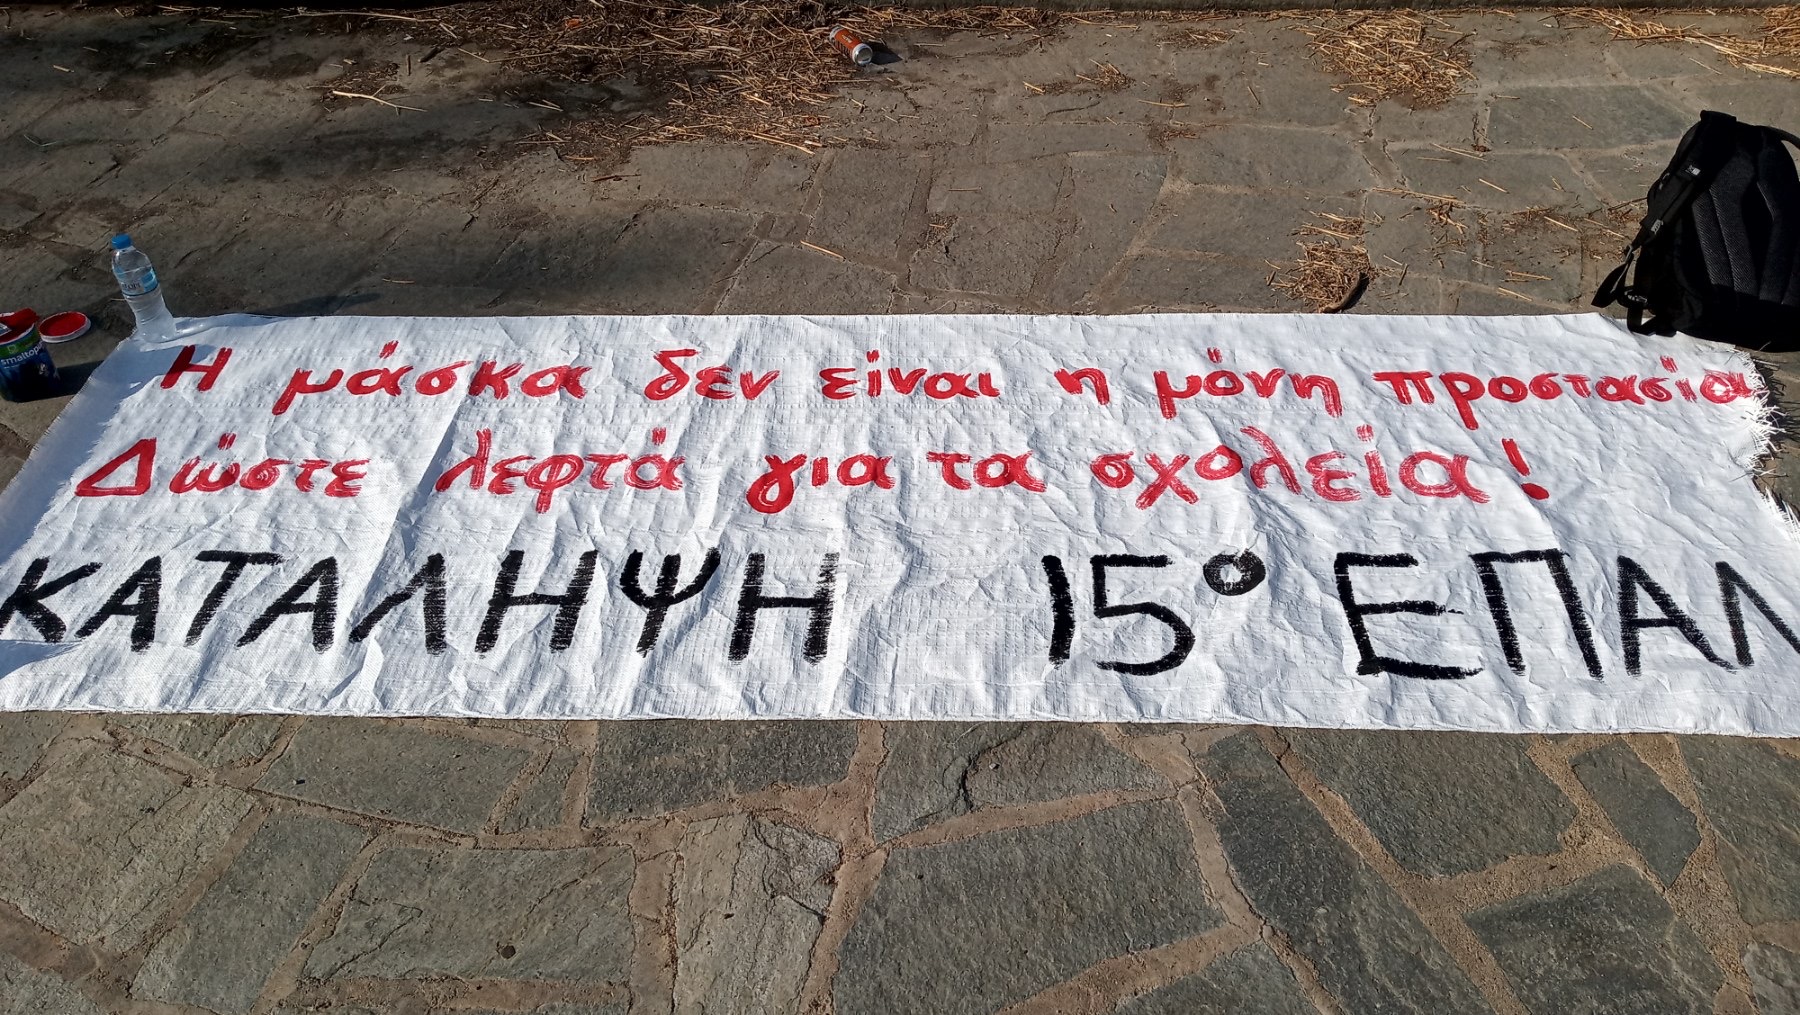 Η μάσκα δεν είναι η μόνη προστασία
Δώστε λεφτά για τα σχολεία!
ΚΑΤΑΛΗΨΗ 15° ΕΠΑΛ
smaltop